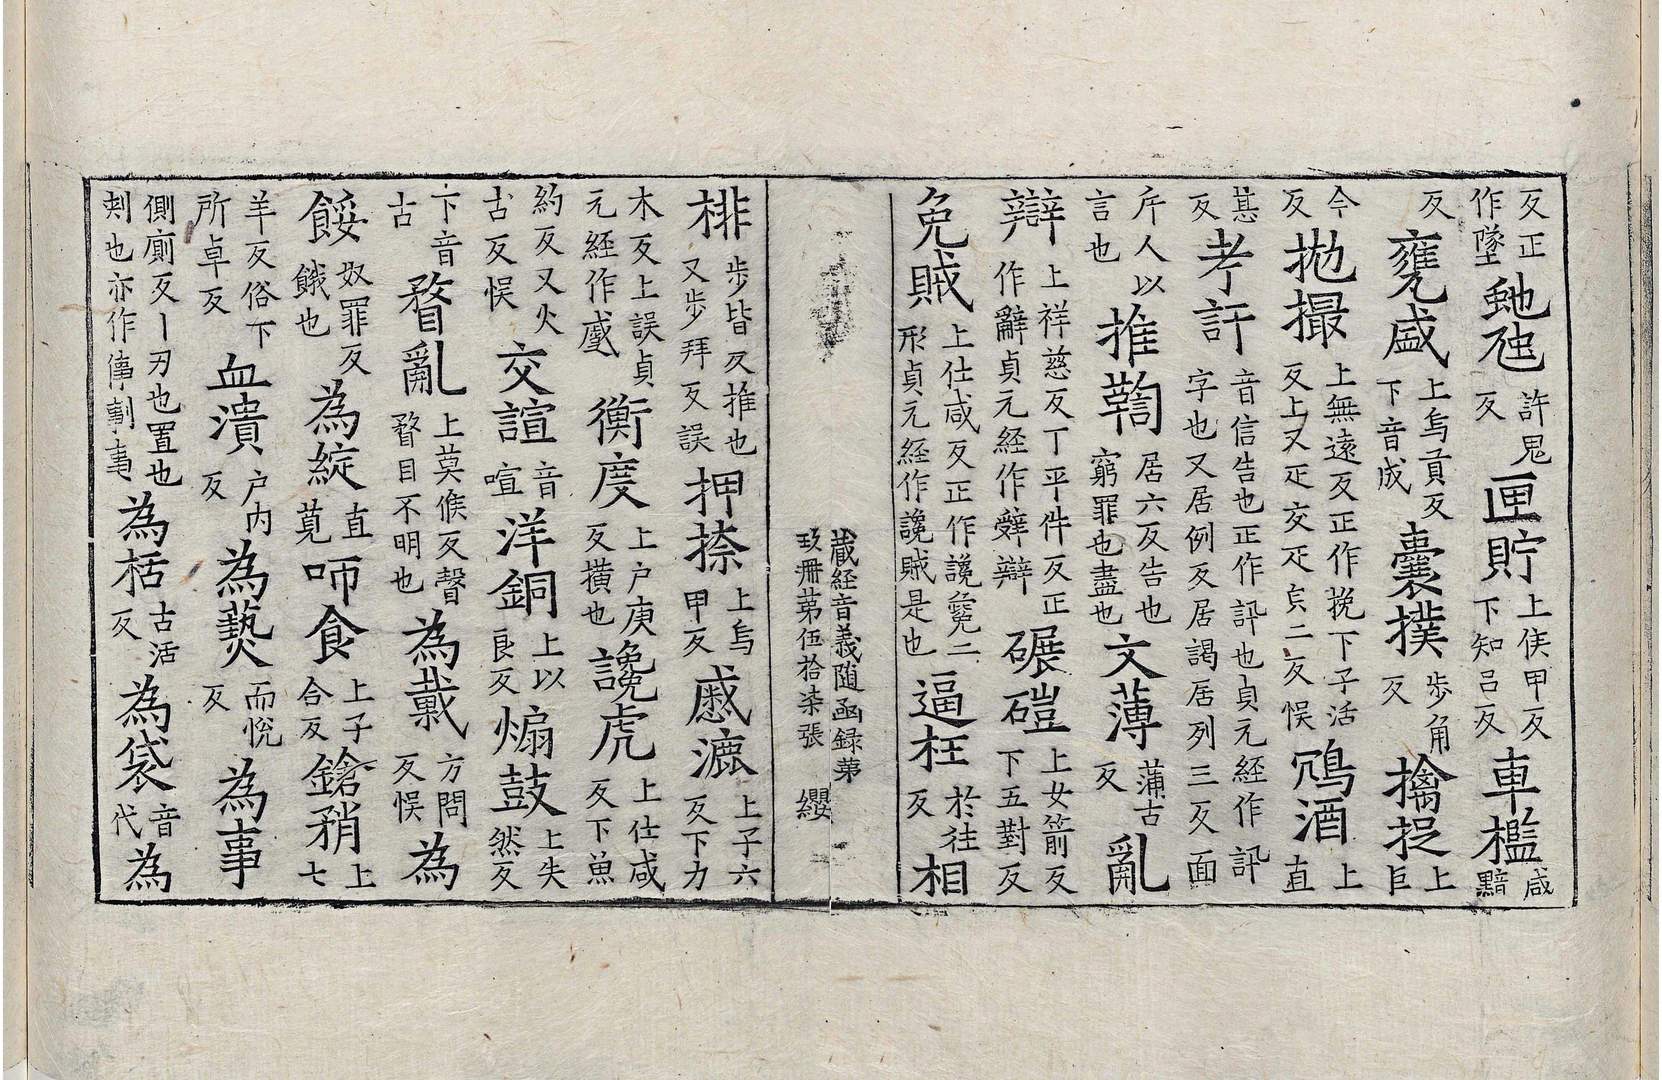 反正作墜虵虺許鬼反匣貯上侯甲反下知吕反車檻咸黯
反甕盛上烏貢反下音成囊撲步角反擒捉上巨
今反拋撮上無遠反正作挽下子活反上又疋交疋皃二反悮鴆酒上直
甚反考訐音信告也正作訊也貞元經作訊字也又居例反居謁居列三反面
斥人以言也推鞫居六反告也窮罪也盡也文薄蒲古反亂
辯上祥慈反丁平件反正作辭貞元經作辤辯碾磑上女箭反下五對反
免賊上仕咸反正作讒毚二形貞元經作讒賊是也逼枉於往反相
藏經音義随函録苐
玖冊苐伍拾柒張 纓
排步皆反推也又步拜反誤押捺上烏甲反慼漉上子六反下力
木反上誤貞元經作蹙衡度上户庚反橫也讒虎上仕咸反下魚
約反又火古反悮交諠音喧洋銅上以良反煽鼓上失然反又
卞音古瞀亂上莫候反瞽瞀目不明也為糞方問反悮為
餒奴罪反餓也為綻直莧咂食上子合反鎗矟上七
羊反俗下所卓反血潰户內反為爇而悅反為事
側廁反丨刃也置也刾也亦作倳剚事為栝古活反為袋音代為